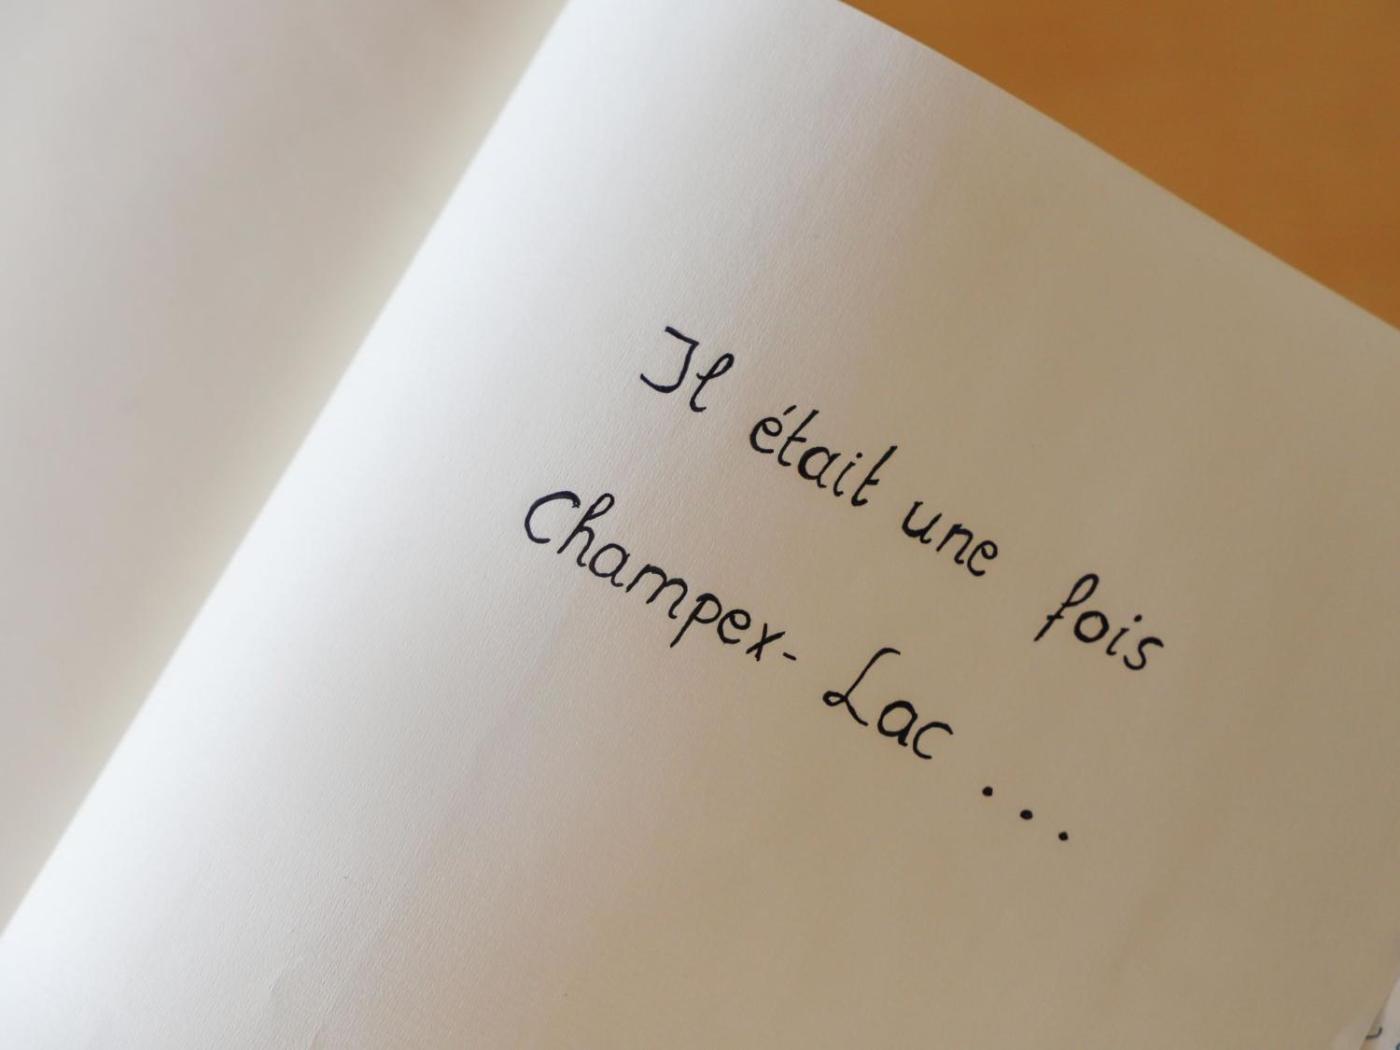 Il était une fois
Champex-Lac ...